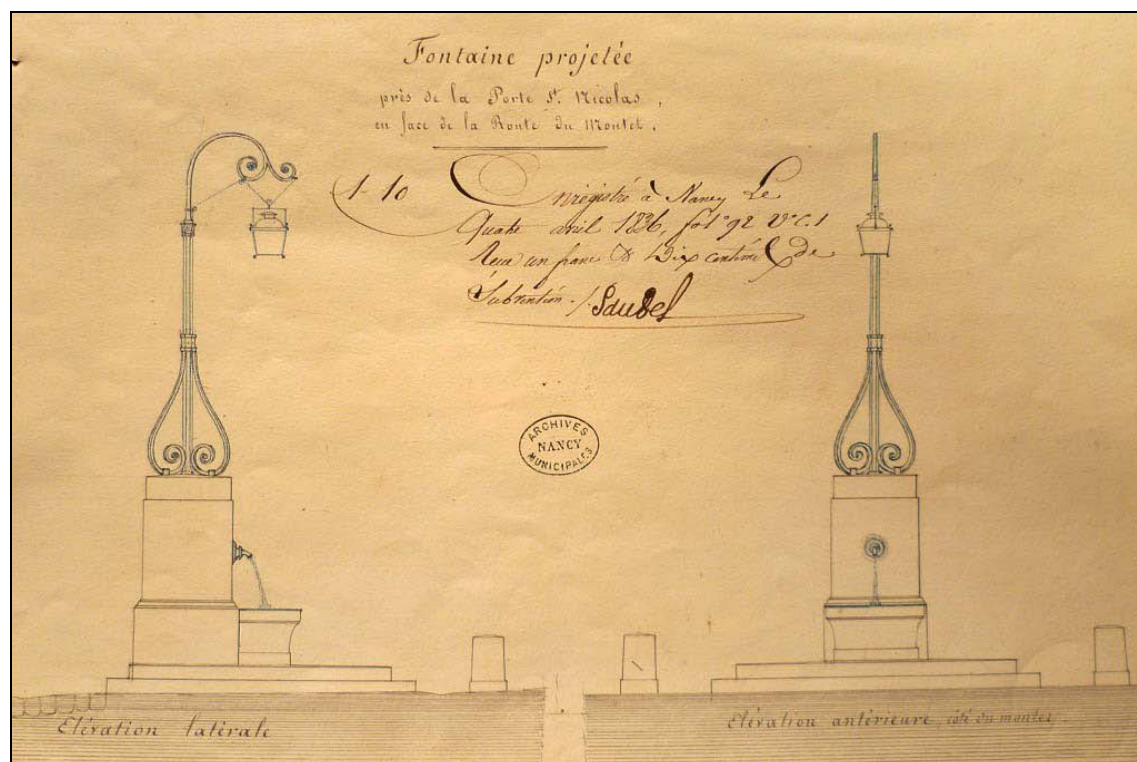 Fontaine projetée
près de la Porte St. Nicolas,
en face de la Route du Montet.
1-10 Enregistré à Nancy Le
Quatre avril 1836, fol° 92 v° c. 1
Reçu un franc & Dix centimes de
Subvention ./.
ARCHIVES
NANCY
MUNICIPALES
Elévation latérale
Elévation antérieure, côté du montet.